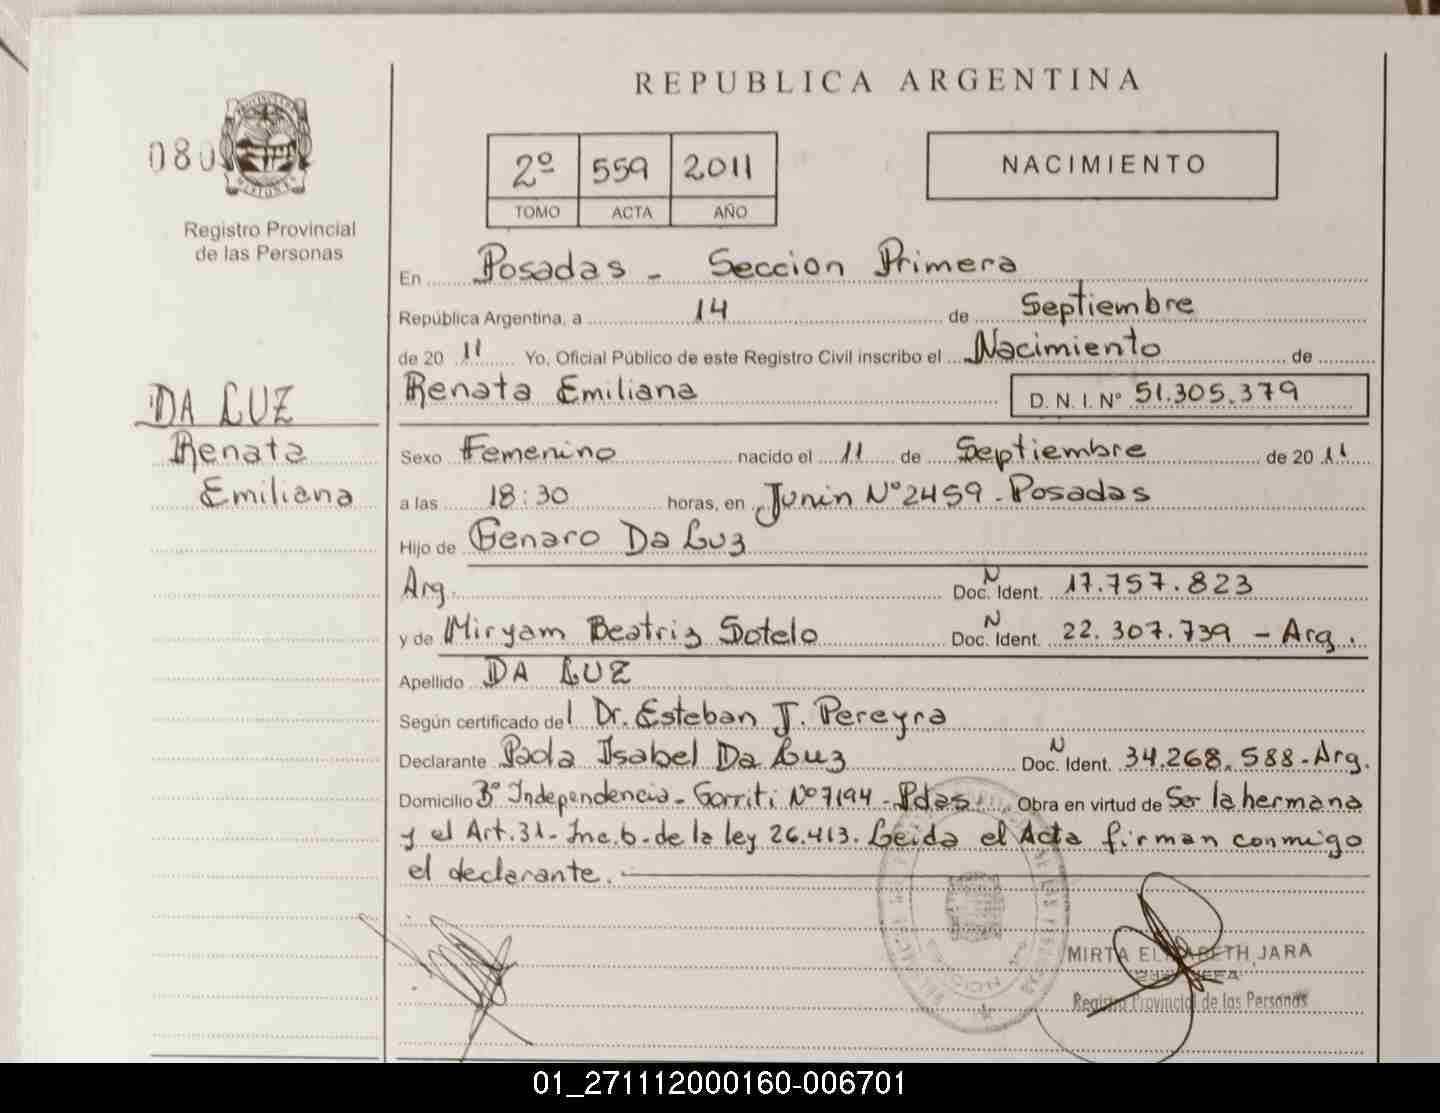 REPUBLICA ARGENTINA
080
Registro Provincial
de las Personas
2º 559 2011
TOMO ACTA AÑO
NACIMIENTO
En Posadas - Seccion Primera
República Argentina, a 14 de Septiembre
de 20 11 Yo, Oficial Público de este Registro Civil inscribo el Nacimiento de
Renata Emiliana D. N. I. Nº 51.305.379
DA LUZ
Renata
Emiliana
Sexo Femenino nacido el 11 de Septiembre de 20 11
a las 18:30 horas, en Junin Nº 2459 - Posadas
Hijo de Genaro Da Luz
Arg. Doc. N Ident. 17.757.823
y de Miryam Beatriz Sotelo Doc. N Ident. 22.307.739 - Arg.
Apellido DA LUZ
Según certificado del Dr. Esteban J. Pereyra
Declarante Paola Isabel Da Luz Doc. N Ident. 34.268.588 - Arg.
Domicilio Bº Independencia - Gorriti Nº 7194 - Pdas. Obra en virtud de Ser la hermana
y el Art. 31 - Inc. b - de la ley 26.413. Leida el Acta firman conmigo
el declarante.
MIRTA ELIZABETH JARA
Registro Provincial de las Personas
01_271112000160-006701